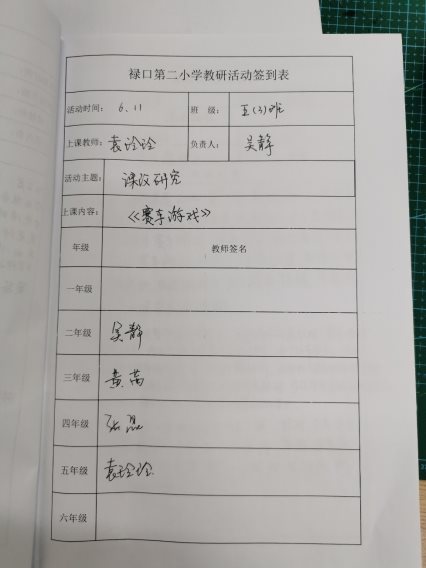 禄口第二小学教研活动签到表
活动时间： 6、11 班 级： 五(3)班
上课教师： 袁玲玲 负责人： 吴静
活动主题： 课后研究
上课内容： 《赛车游戏》
年级 教师签名
一年级
二年级 吴静
三年级 黄芮
四年级 张
五年级 袁玲玲
六年级